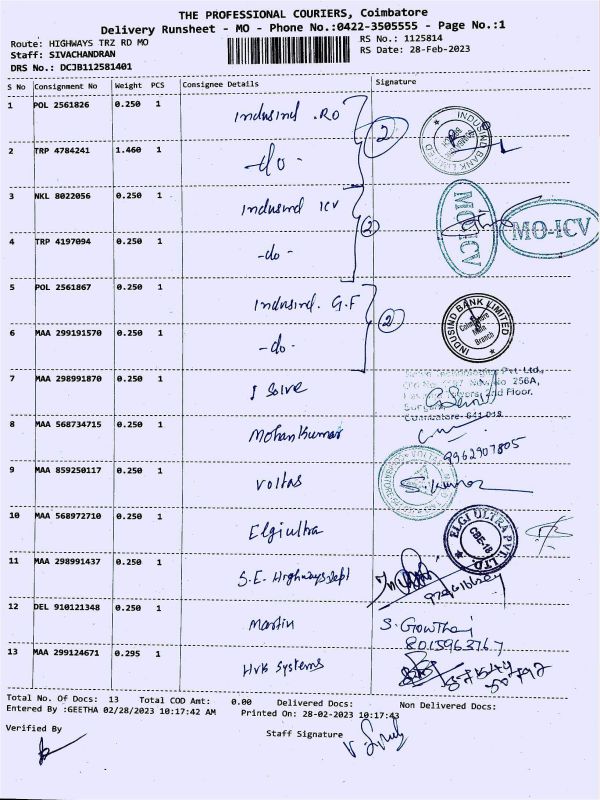 THE PROFESSIONAL COURIERS, Coimbatore
Delivery Runsheet - MO - Phone No.:0422-3505555 - Page No.:1
Route: HIGHWAYS TRZ RD MO
RS No.: 1125814
Staff: SIVACHANDRAN
RS Date: 28-Feb-2023
DRS No.: DCJB112581401
S No Consignment No Weight PCS Consignee Details Signature
1 POL 2561826 0.250 1 Indusind .RO 2 INDUSIND BANK LIMITED
2 TRP 4784241 1.460 1 -do-
3 NKL 8022056 0.250 1 Indusind ICV 2 MO-ICV MO-ICV
4 TRP 4197094 0.250 1 -do-
5 POL 2561867 0.250 1 Indusind. G.F 2 INDUSIND BANK LIMITED Coimbatore Main Branch
6 MAA 299191570 0.250 1 -do-
7 MAA 298991870 0.250 1 I Solve Pvt. Ltd., 256A, Floor, Coimbatore-641 018
8 MAA 568734715 0.250 1 Mohankumar 9962907805
9 MAA 859250117 0.250 1 Voltas S.kumar
10 MAA 568972710 0.250 1 Elgiultra ELGI ULTRA PVT. LTD. CBE-18
11 MAA 298991437 0.250 1 S.E. Highways dept
12 DEL 910121348 0.250 1 Martin S. Gowthaj 8015963767
13 MAA 299124671 0.295 1 Hvk Systems
Total No. Of Docs: 13 Total COD Amt: 0.00 Delivered Docs: Non Delivered Docs:
Entered By :GEETHA 02/28/2023 10:17:42 AM Printed On: 28-02-2023 10:17:43
Verified By
Staff Signature